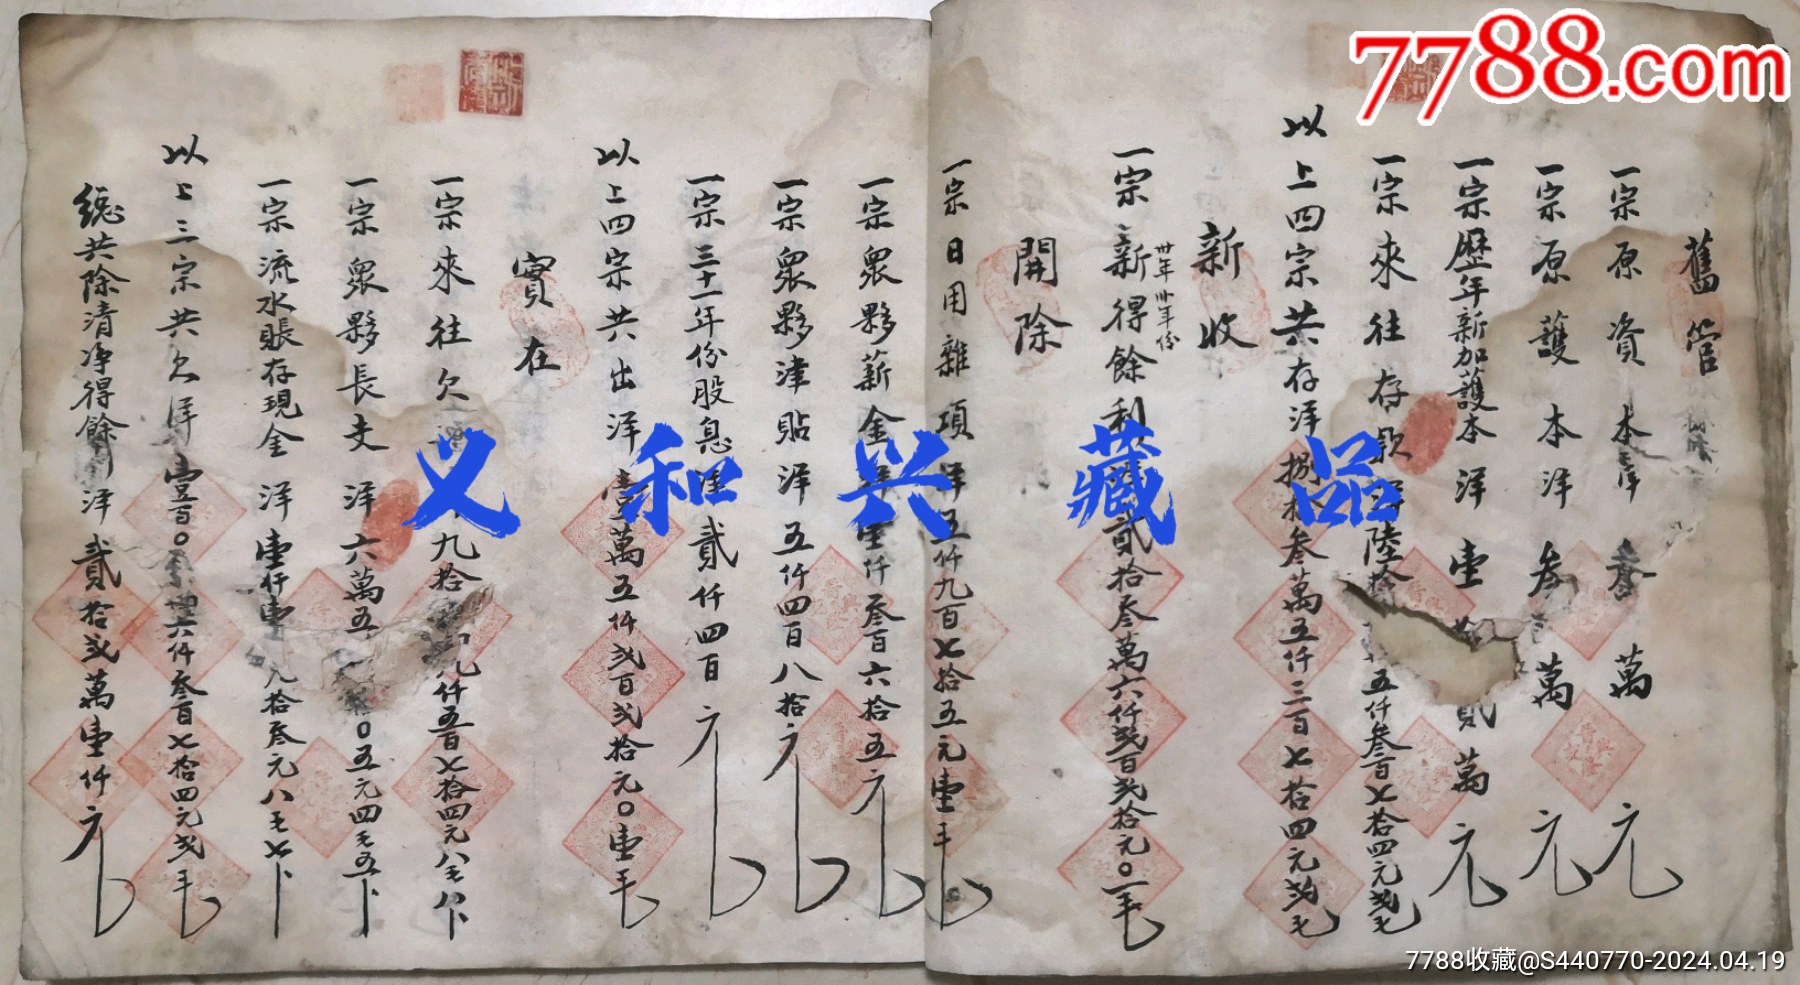 7788.com
舊管
一宗原資本洋叁萬元
一宗原護本洋叁萬元
一宗歷年新加護本洋壹 貳萬元
一宗來往存款洋陸拾 五仟叁百七拾四元弍毛
以上四宗共存洋捌拾叁萬五仟三百七拾四元弍毛
新收
卅年卅年份
一宗新得餘利 貳拾叁萬六仟弍百弍拾元〇一毛
開除
一宗日用雜項洋五仟九百七拾五元壹毛
一宗眾夥薪金洋壹仟叁百六拾五元
一宗眾夥津貼洋五仟四百八拾元
一宗三十一年份股息洋貳仟四百元
以上四宗共出洋壹萬五仟弍百弍拾元〇壹毛
實在
一宗來往欠 九拾 九仟五百七拾四元八毛八卜
一宗眾夥長支洋六萬五 〇五元四毛五卜
一宗流水賬存現金洋壹仟壹 九拾叁元八毛七卜
以上三宗共欠洋壹百〇 六仟叁百七拾四元弍毛
總共除清淨得餘 洋貳拾弍萬壹仟元
义和兴藏品
7788收藏@S440770-2024.04.19